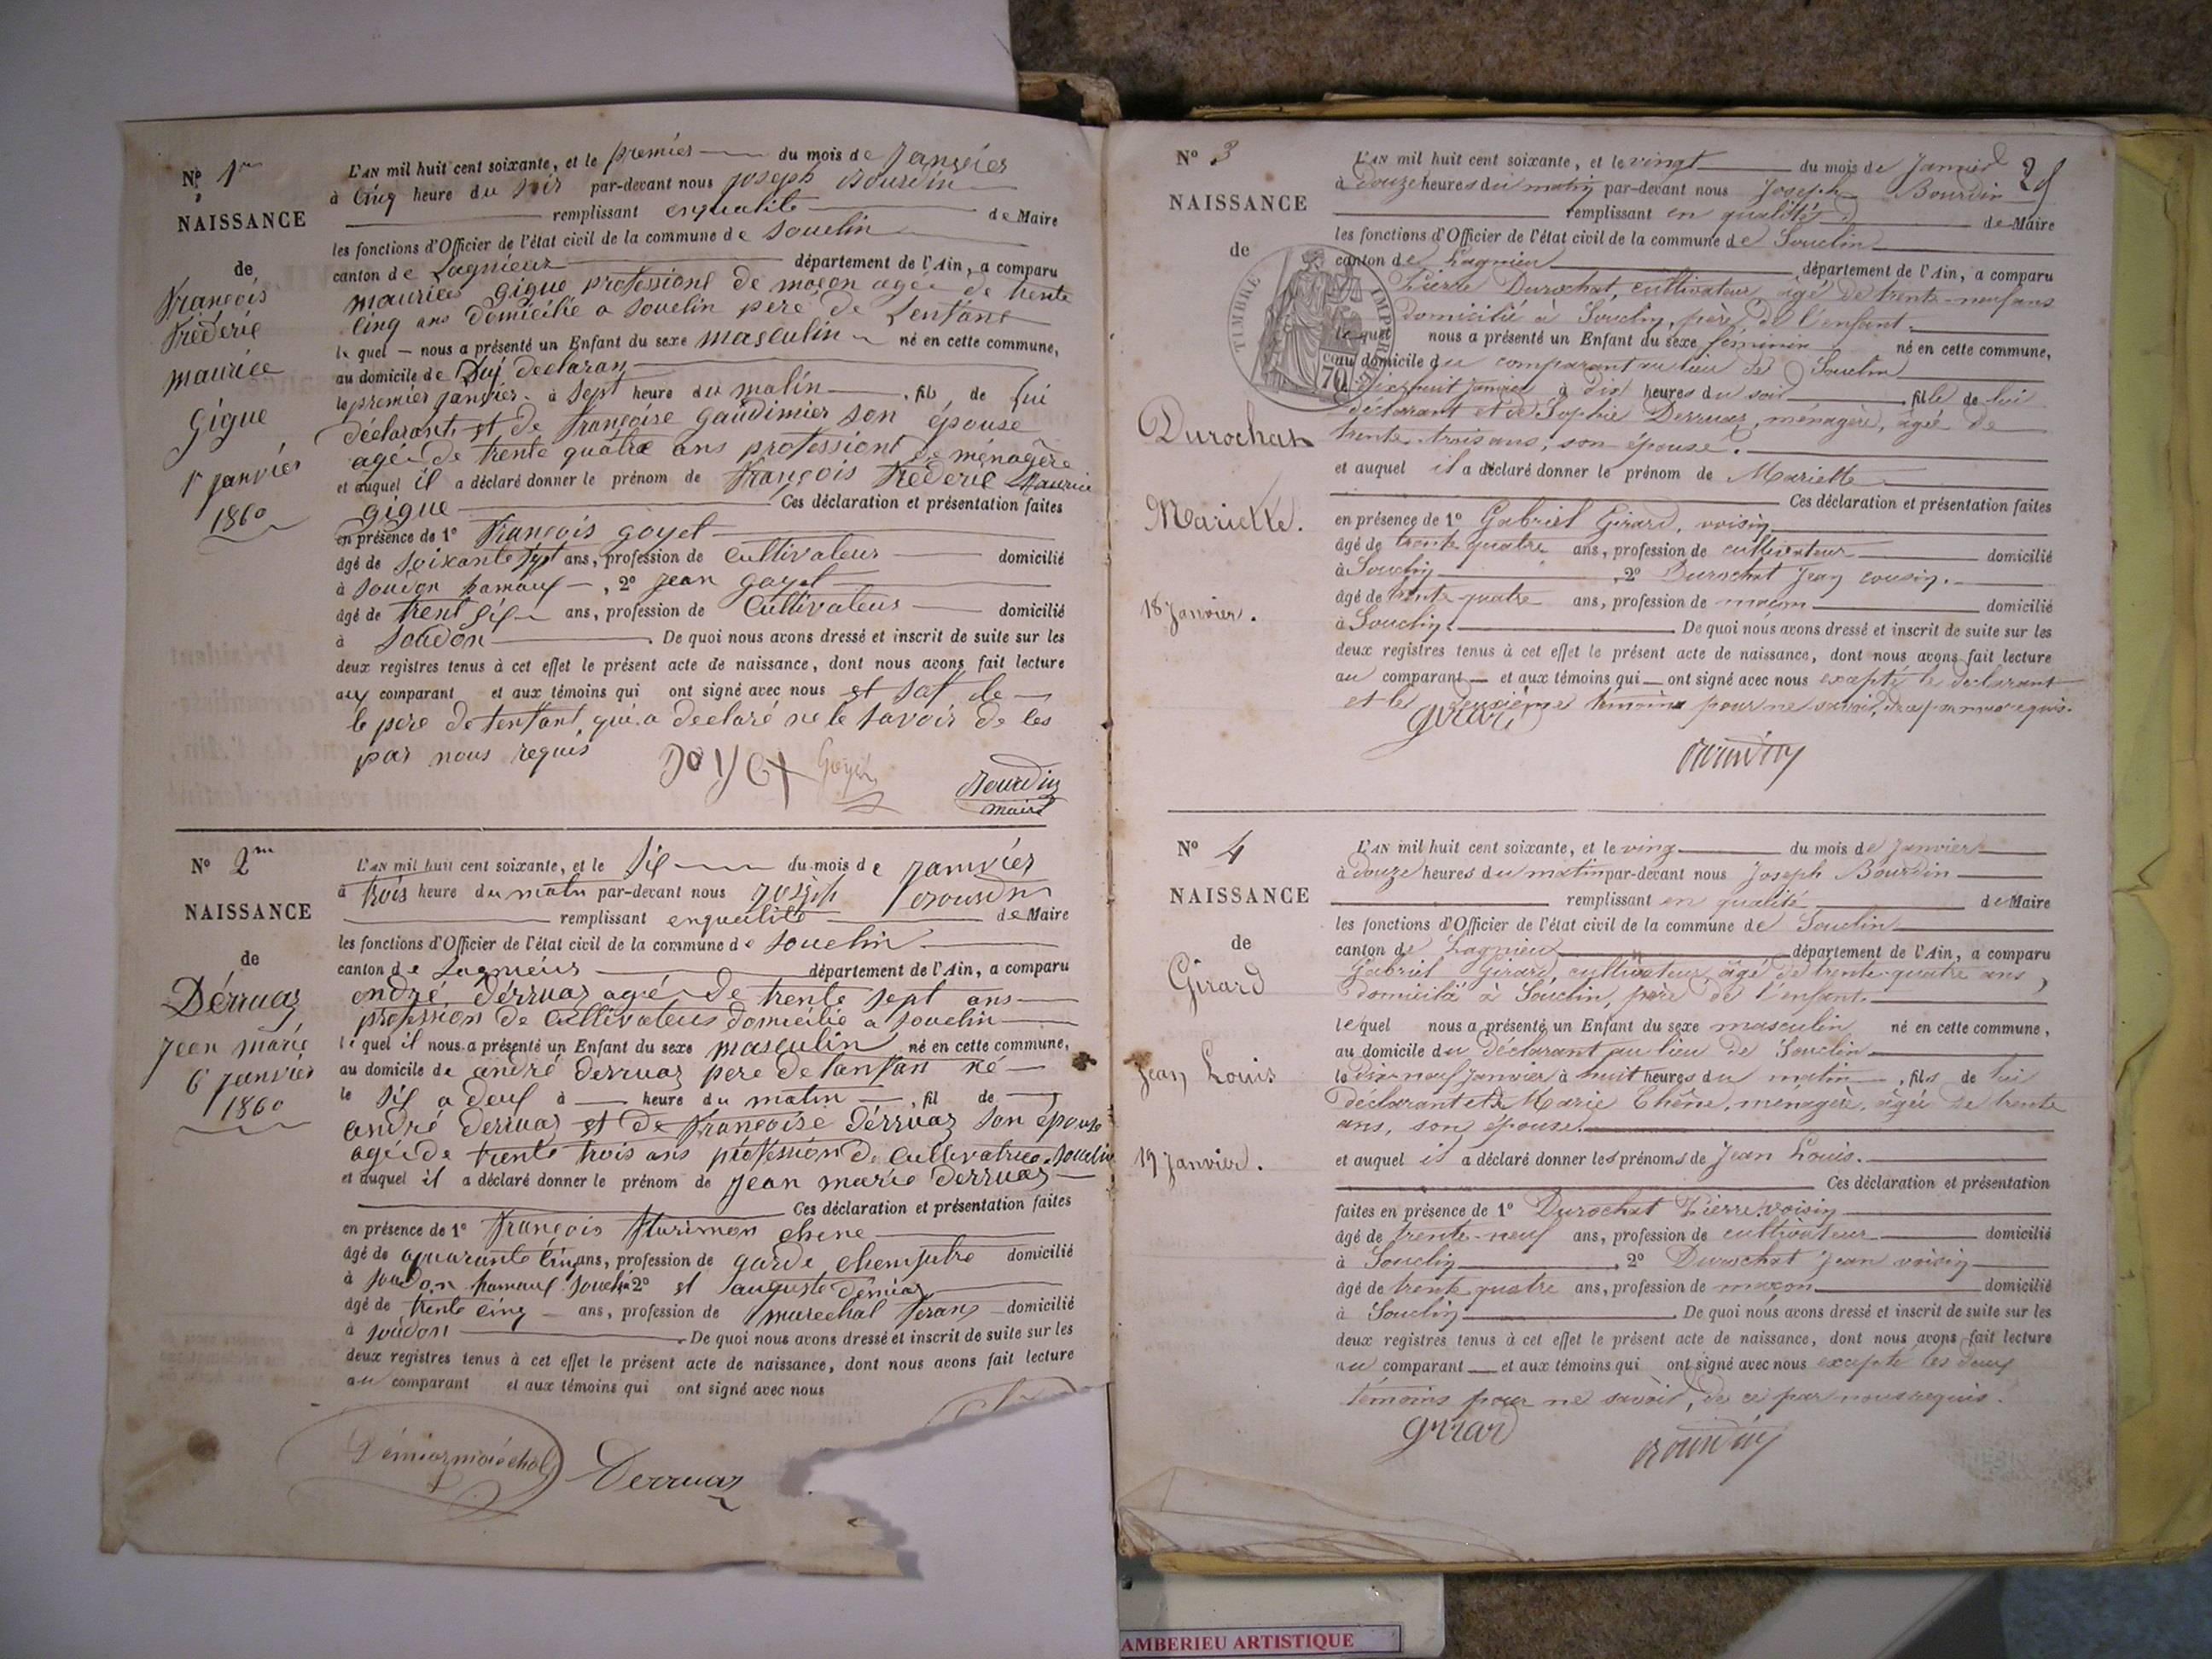 Nº 1er
NAISSANCE
de
François
Fréderic
maurice
Gigue
1r janvier
1860
L'AN mil huit cent soixante, et le premier du mois de Janvier
à Cinq heure du soir par-devant nous Joseph Bourdin
remplissant enqualité de Maire
les fonctions d'Officier de l'état civil de la commune de Souclin
canton de Lagnieux département de l'Ain, a comparu
maurice gigue professiont de maçon agée de trente
Cinq ans domicilié a souclin pere de Lenfant
le quel nous a présenté un Enfant du sexe masculin né en cette commune,
au domicile de Dui declaran
le premier janvier à sept heure du matin, fils de lui
déclarant et de françoise gaudimier son épouse
agée de trente quatre ans professiont de ménagère
et auquel il a déclaré donner le prénom de François fréderic Maurice
gigue Ces déclaration et présentation faites
en présence de 1º François goyet
âgé de soixante sept ans, profession de Cultivateur domicilié
à soudon hamauf, 2º jean goyet
âgé de trent six ans, profession de Cultivateur domicilié
à soudon. De quoi nous avons dressé et inscrit de suite sur les
deux registres tenus à cet effet le présent acte de naissance, dont nous avons fait lecture
aux comparant et aux témoins qui ont signé avec nous et sof de
le pere de tenfant, qui a declaré ne le savoir de les
par nous requis
goyet Goyet Bourdin
maire
Nº 2me
NAISSANCE
de
Dérruaz
jean marie
6 janvier
1860
L'AN mil huit cent soixante, et le six du mois de janvier
à trois heure du matin par-devant nous joseph Bourdin
remplissant enqualité de Maire
les fonctions d'Officier de l'état civil de la commune de souclin
canton de Lagnieus département de l'Ain, a comparu
andré dérruaz agé de trente sept ans
profession de Cultivateus domicilié a souclin
le quel il nous a présenté un Enfant du sexe masculin né en cette commune,
au domicile de andré derruaz pere de lanfan né
le six a deux à heure du matin, fil de
andré derruaz et de françoise dérruaz son épouse
agée de trente trois ans profession de Cultivatrice souclin
et auquel il a déclaré donner le prénom de jean marie derruaz
Ces déclaration et présentation faites
en présence de 1º françois chene
âgé de quarante Cinq ans, profession de garde domicilié
à soudon hamauf souclin 2º et auguste démiaz
âgé de trente cinq ans, profession de marechal ferans domicilié
à soudon. De quoi nous avons dressé et inscrit de suite sur les
deux registres tenus à cet effet le présent acte de naissance, dont nous avons fait lecture
au comparant et aux témoins qui ont signé avec nous
Démiaz maréchal Derruaz
Nº 3
NAISSANCE
de
Durochat
Mariette.
18 Janvier.
TIMBRE IMPERIAL
70
L'AN mil huit cent soixante, et le vingt du mois de Janvier
à Douze heures du matin par-devant nous Joseph Bourdin
remplissant en qualité de Maire
les fonctions d'Officier de l'état civil de la commune de Souclin
canton de Lagnieu département de l'Ain, a comparu
Pierre Durochat, cultivateur âgé de trente-neuf ans
domicilié à Souclin, père de l'enfant.
lequel nous a présenté un Enfant du sexe féminin né en cette commune,
au domicile du comparant au lieu de Souclin
dix-huit janvier à dix heures du soir, fille de lui
déclarant et de Sophie Derruaz, ménagère, âgée de
trente-trois ans, son épouse.
et auquel il a déclaré donner le prénom de Mariette
Ces déclaration et présentation faites
en présence de 1º Gabriel Girard, voisin
âgé de trente quatre ans, profession de cultivateur domicilié
à Souclin, 2º Durochat Jean cousin.
âgé de trente-quatre ans, profession de maçon domicilié
à Souclin. De quoi nous avons dressé et inscrit de suite sur les
deux registres tenus à cet effet le présent acte de naissance, dont nous avons fait lecture
au comparant et aux témoins qui ont signé avec nous excepté le declarant
et le deuxième témoins pour ne savoir, de ce par nous requis.
girard Bourdin
Nº 4
NAISSANCE
de
Girard
Jean Louis
19 Janvier.
L'AN mil huit cent soixante, et le ving du mois de Janvier
à douze heures du matin par-devant nous Joseph Bourdin
remplissant en qualité de Maire
les fonctions d'Officier de l'état civil de la commune de Souclin
canton de Lagnieu département de l'Ain, a comparu
Gabriel Girard, cultivateur âgé de trente-quatre ans,
domicilié à Souclin, père de l'enfant.
lequel nous a présenté un Enfant du sexe masculin né en cette commune,
au domicile du déclarant au lieu de Souclin
le Dix-neuf Janvier à huit heures du matin, fils de lui
declarant et de Marie Chêne, menagère, âgée de trente
ans, son épouse.
et auquel il a déclaré donner les prénoms de Jean Louis.
Ces déclaration et présentation
faites en présence de 1º Durochat Pierre voisin
âgé de trente-neuf ans, profession de cultivateur domicilié
à Souclin, 2º Durochat Jean voisin
âgé de trente quatre ans, profession de maçon domicilié
à Souclin. De quoi nous avons dressé et inscrit de suite sur les
deux registres tenus à cet effet le présent acte de naissance, dont nous avons fait lecture
au comparant et aux témoins qui ont signé avec nous excepté les deux
témoins pour ne savoir, de ce par nous requis.
girard Bourdin
AMBERIEU ARTISTIQUE